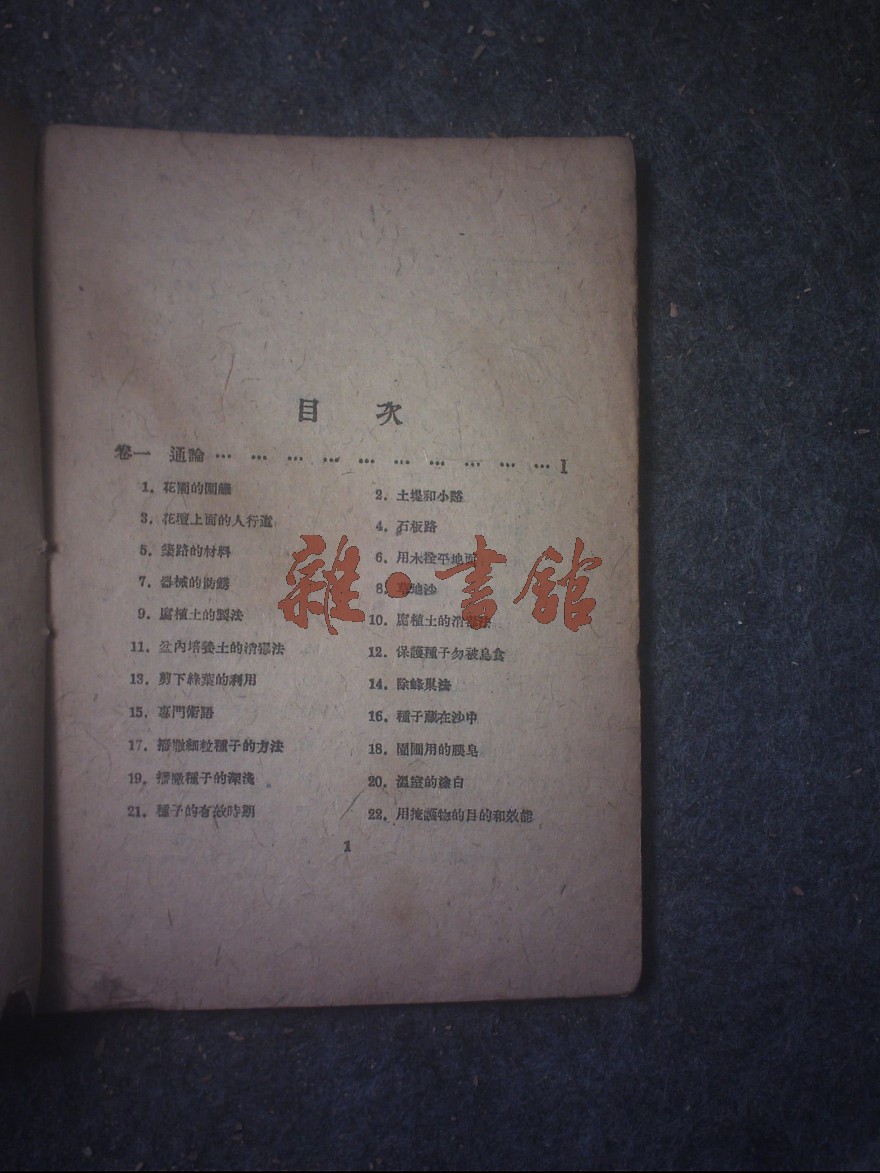 目次
卷一 通論 … … … … … … … … … … 1
1. 花園的開牆 2. 土堤和小路
3. 花壇上面的人行道 4. 石板路
5. 築路的材料 6. 用木拴平地面
7. 器械的防銹 8. 草地沙
9. 腐植土的製法 10. 腐植土的消毒法
11. 盆內培養土的消毒法 12. 保護種子勿被鳥食
13. 剪下綠葉的利用 14. 除蜂巢法
15. 專門術語 16. 種子藏在沙中
17. 播撒細粒種子的方法 18. 園圃用的肥皂
19. 播撒種子的深淺 20. 溫室的塗白
21. 種子的有效時期 22. 用掩護物的目的和效能
1
雜·書館